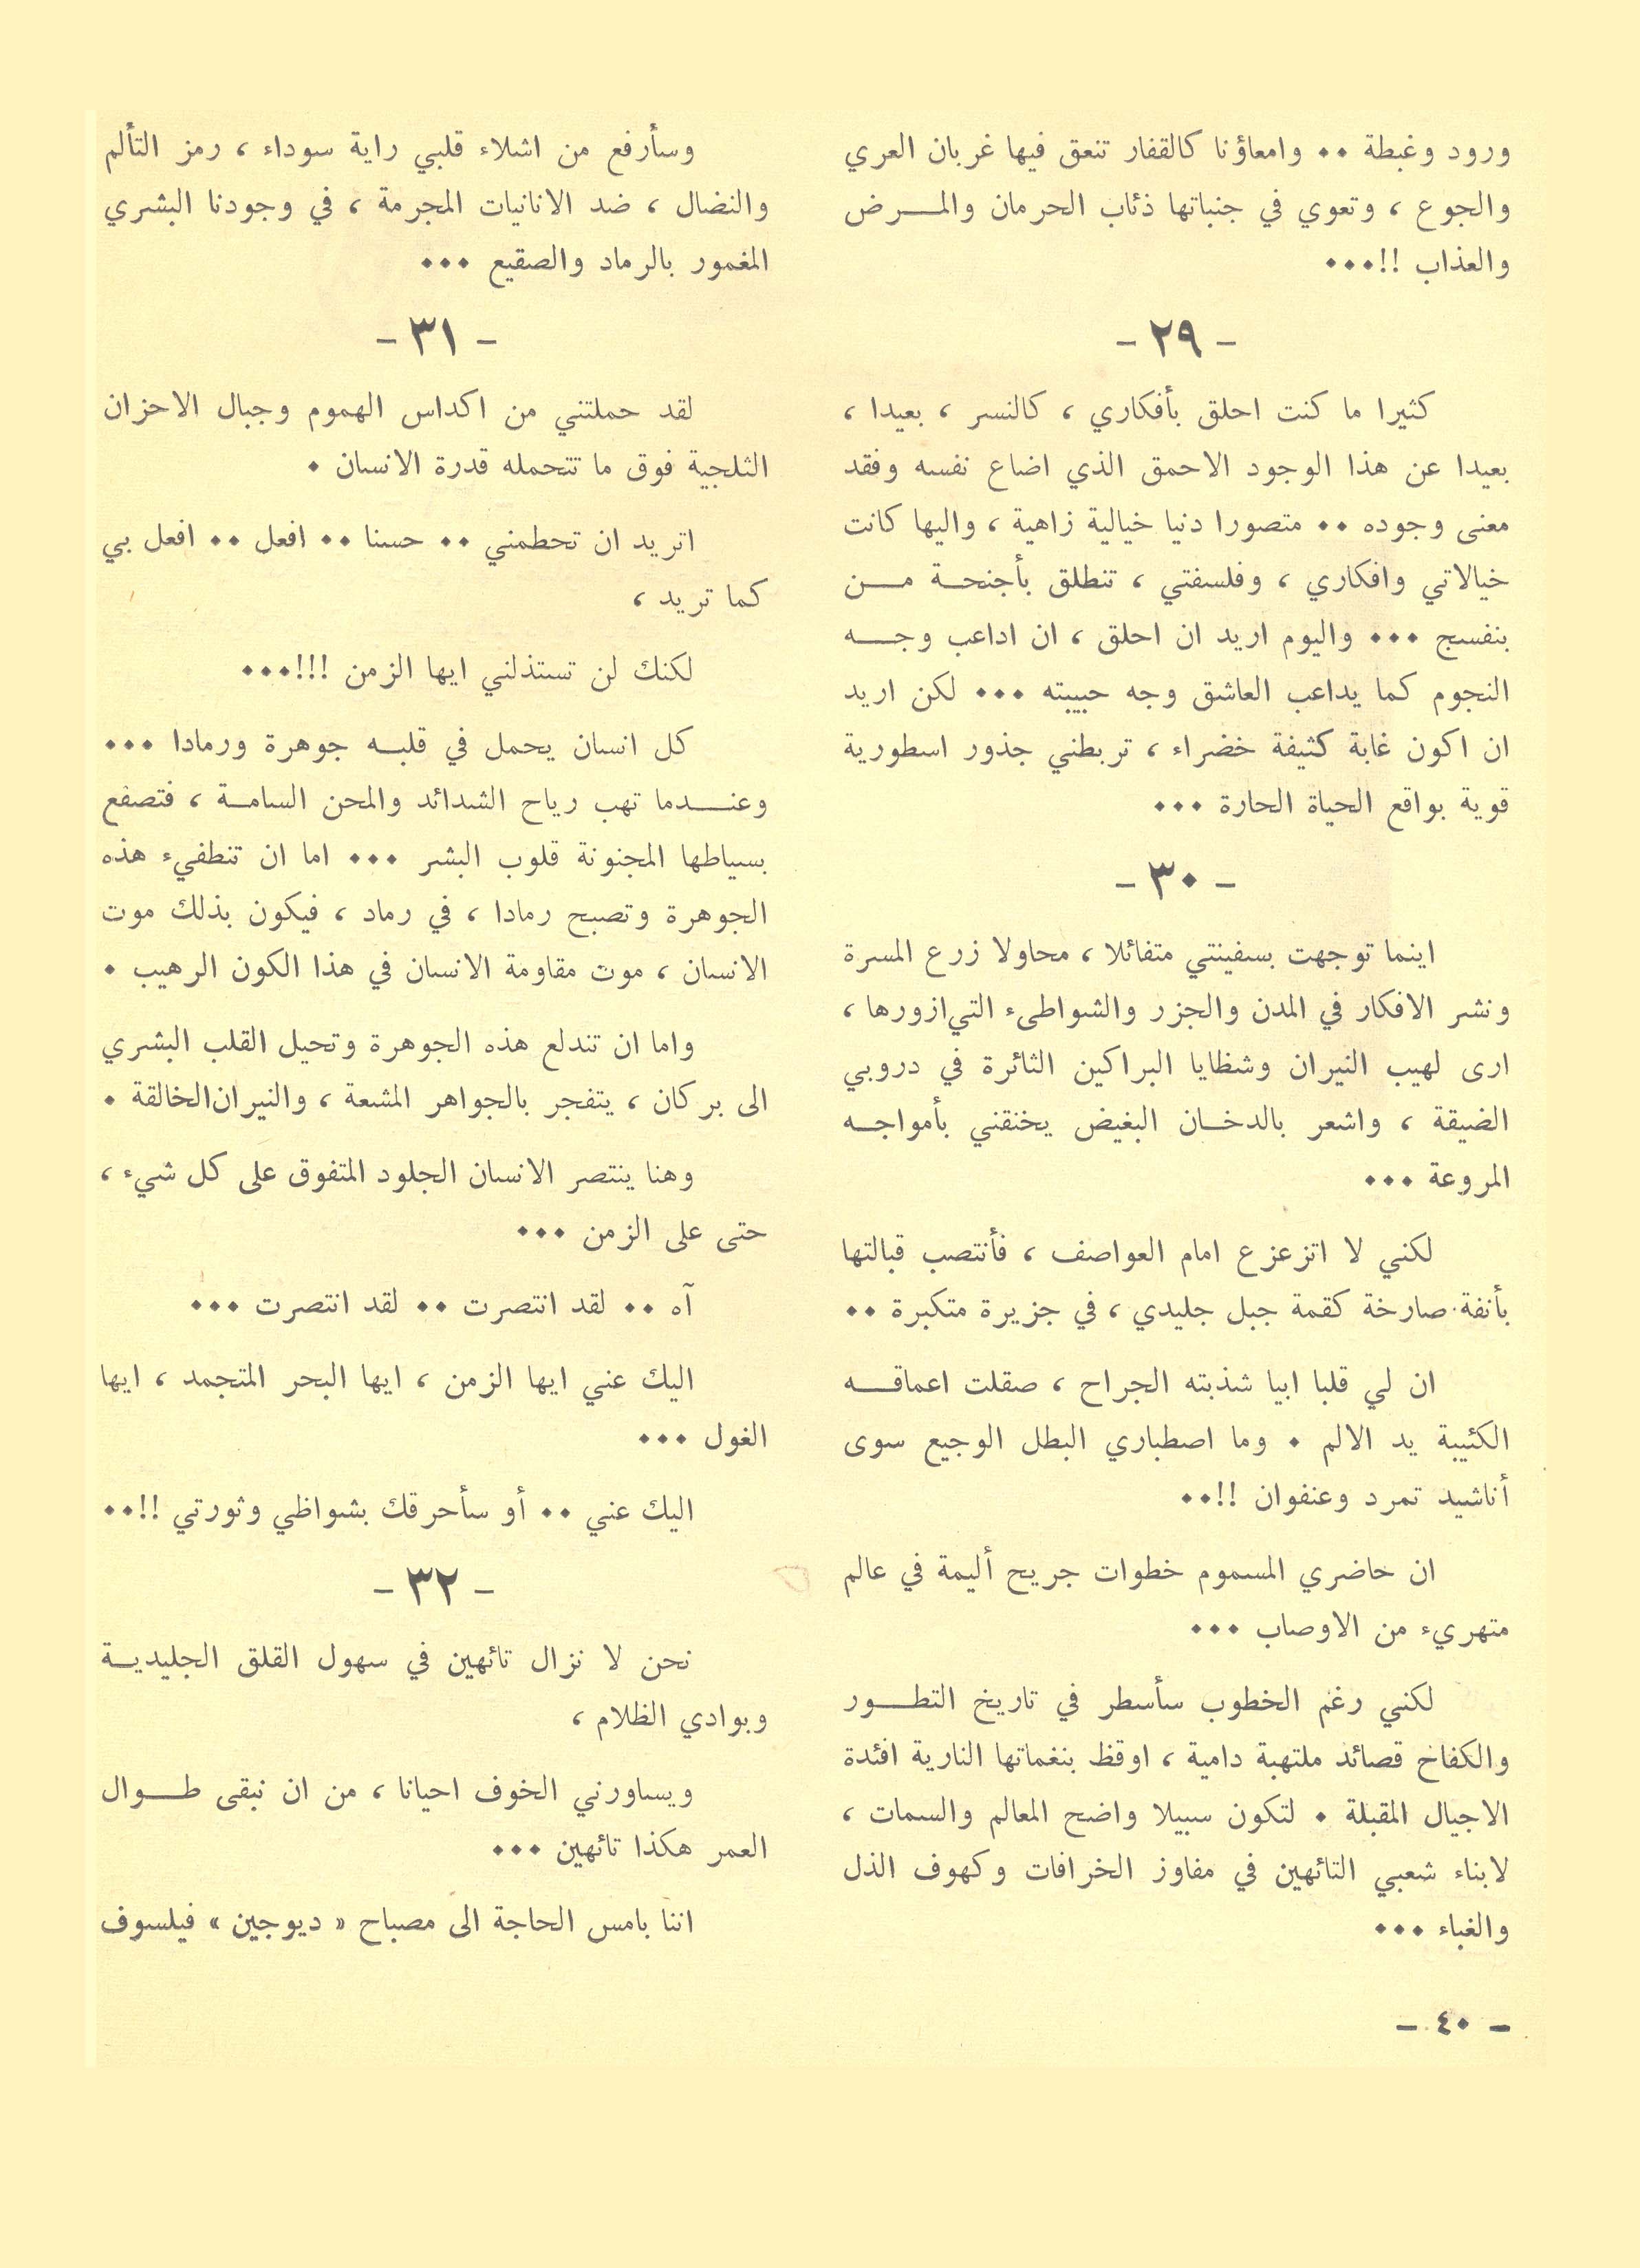 ورود وغبطة ٠٠ وامعاؤنا كالقفار تنعق فيها غربان العري
والجوع ، وتعوي في جنباتها ذئاب الحرمان والمـــرض
والعذاب !!٠٠٠
- ٢٩ -
كثيرا ما كنت احلق بأفكاري ، كالنسر ، بعيدا ،
بعيدا عن هذا الوجود الاحمق الذي اضاع نفسه وفقد
معنى وجوده ٠٠ متصورا دنيا خيالية زاهية ، واليها كانت
خيالاتي وافكاري ، وفلسفتي ، تنطلق بأجنحـة مــن
بنفسج ٠٠٠ واليوم اريد ان احلق ، ان اداعب وجــه
النجوم كما يداعب العاشق وجه حبيبته ٠٠٠ لكن اريد
ان اكون غابة كثيفة خضراء ، تربطني جذور اسطورية
قوية بواقع الحياة الحارة ٠٠٠
- ٣٠ -
اينما توجهت بسفينتي متفائلا ، محاولا زرع المسرة
ونشر الافكار في المدن والجزر والشواطىء التي ازورها ،
ارى لهيب النيران وشظايا البراكين الثائرة في دروبي
الضيقة ، واشعر بالدخـان البغيض يخنقني بأمواجـه
المروعة ٠٠٠
لكني لا اتزعزع امام العواصف ، فأنتصب قبالتها
بأنفة صارخة كقمة جبل جليدي ، في جزيرة متكبرة ٠٠
ان لي قلبا ابيا شذبته الجراح ، صقلت اعماقــه
الكئيبة يد الالم ٠ وما اصطباري البطل الوجيع سوى
أناشيد تمرد وعنفوان !!٠٠
ان حاضري المسموم خطوات جريح أليمة في عالم
متهريء من الاوصاب ٠٠٠
لكني رغم الخطوب سأسطر في تاريخ التطــور
والكفاح قصائد ملتهبة دامية ، اوقظ بنغماتها النارية افئدة
الاجيال المقبلة ٠ لتكون سبيلا واضح المعالم والسمات ،
لابناء شعبي التائهين في مفاوز الخرافات وكهوف الذل
والغباء ٠٠٠
وسأرفع من اشلاء قلبي راية سوداء ، رمز التألم
والنضال ، ضد الانانيات المجرمة ، في وجودنا البشري
المغمور بالرماد والصقيع ٠٠٠
- ٣١ -
لقد حملتني من اكداس الهموم وجبال الاحزان
الثلجية فوق ما تتحمله قدرة الانسان ٠
اتريد ان تحطمني ٠٠ حسنا ٠٠ افعل ٠٠ افعل بي
كما تريد ،
لكنك لن تستذلني ايها الزمن !!!٠٠٠
كل انسان يحمل في قلبـه جوهرة ورمادا ٠٠٠
وعنــدما تهب رياح الشدائد والمحن السامـة ، فتصفع
بسياطها المجنونة قلوب البشر ٠٠٠ اما ان تنطفيء هذه
الجوهرة وتصبح رمادا ، في رماد ، فيكون بذلك موت
الانسان ، موت مقاومة الانسان في هذا الكون الرهيب ٠
واما ان تندلع هذه الجوهرة وتحيل القلب البشري
الى بركان ، يتفجر بالجواهر المشعة ، والنيران الخالقة ٠
وهنا ينتصر الانسان الجلود المتفوق على كل شيء ،
حتى على الزمن ٠٠٠
آه ٠٠ لقد انتصرت ٠٠ لقد انتصرت ٠٠٠
اليك عني ايها الزمن ، ايها البحر المتجمد ، ايها
الغول ٠٠٠
اليك عني ٠٠ أو سأحرقك بشواظي وثورتي !!٠٠
- ٣٢ -
نحن لا نزال تائهين في سهول القلق الجليديـة
وبوادي الظلام ،
ويساورني الخوف احيانا ، من ان نبقى طــوال
العمر هكذا تائهين ٠٠٠
اننا بامس الحاجة الى مصباح « ديوجين » فيلسوف
- ٤٠ -